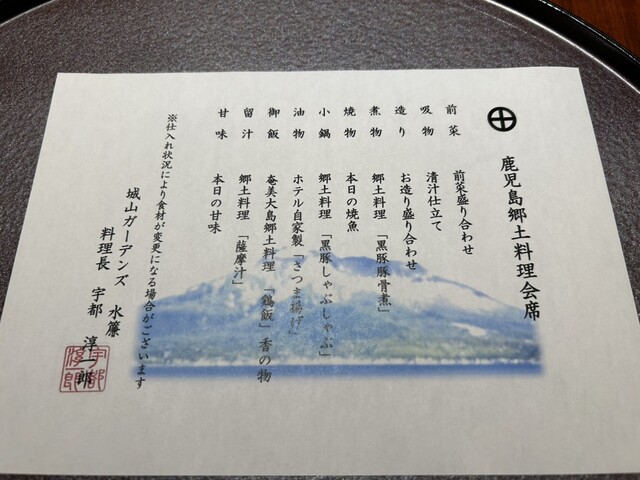 鹿児島郷土料理会席
前菜 前菜盛り合わせ
吸物 清汁仕立て
造り お造り盛り合わせ
煮物 郷土料理 「黒豚豚骨煮」
焼物 本日の焼魚
小鍋 郷土料理 「黒豚しゃぶしゃぶ」
油物 ホテル自家製「さつま揚げ」
御飯 奄美大島郷土料理 「鶏飯」 香の物
留汁 郷土料理 「薩摩汁」
甘味 本日の甘味
※仕入れ状況により食材が変更になる場合がございます
城山ガーデンズ 水簾
料理長 宇都 淳一郎
宇都
淳一郎